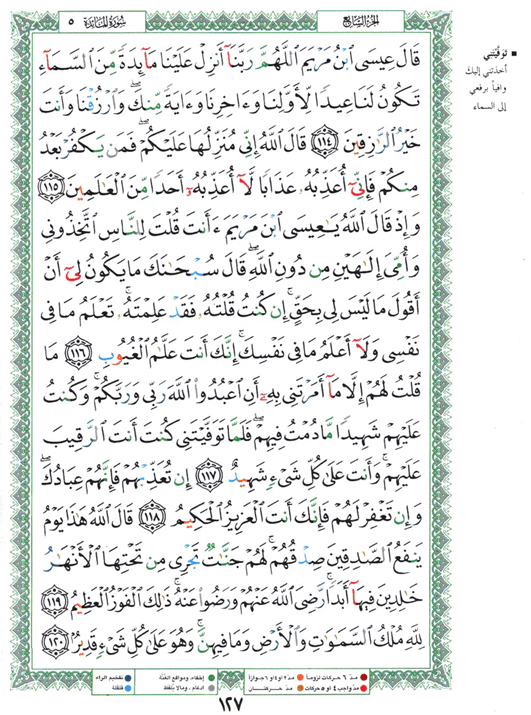 الجزء السابع
سُورَةُ المَائِدَة
٥
قَالَ عِيسَى ٱبْنُ مَرْيَمَ ٱللَّهُمَّ رَبَّنَآ أَنزِلْ عَلَيْنَا مَآئِدَةً مِّنَ ٱلسَّمَآءِ
تَكُونُ لَنَا عِيدًا لِّأَوَّلِنَا وَءَاخِرِنَا وَءَايَةً مِّنكَ ۖ وَٱرْزُقْنَا وَأَنتَ
خَيْرُ ٱلرَّٰزِقِينَ ١١٤ قَالَ ٱللَّهُ إِنِّى مُنَزِّلُهَا عَلَيْكُمْ ۖ فَمَن يَكْفُرْ بَعْدُ
مِنكُمْ فَإِنِّىٓ أُعَذِّبُهُۥ عَذَابًا لَّآ أُعَذِّبُهُۥٓ أَحَدًا مِّنَ ٱلْعَٰلَمِينَ ١١٥
وَإِذْ قَالَ ٱللَّهُ يَٰعِيسَى ٱبْنَ مَرْيَمَ ءَأَنتَ قُلْتَ لِلنَّاسِ ٱتَّخِذُونِى
وَأُمِّىَ إِلَٰهَيْنِ مِن دُونِ ٱللَّهِ ۖ قَالَ سُبْحَٰنَكَ مَا يَكُونُ لِىٓ أَنْ
أَقُولَ مَا لَيْسَ لِى بِحَقٍّ ۚ إِن كُنتُ قُلْتُهُۥ فَقَدْ عَلِمْتَهُۥ ۚ تَعْلَمُ مَا فِى
نَفْسِى وَلَآ أَعْلَمُ مَا فِى نَفْسِكَ ۚ إِنَّكَ أَنتَ عَلَّٰمُ ٱلْغُيُوبِ ١١٦ مَا
قُلْتُ لَهُمْ إِلَّا مَآ أَمَرْتَنِى بِهِۦٓ أَنِ ٱعْبُدُوا۟ ٱللَّهَ رَبِّى وَرَبَّكُمْ ۚ وَكُنتُ
عَلَيْهِمْ شَهِيدًا مَّا دُمْتُ فِيهِمْ ۖ فَلَمَّا تَوَفَّيْتَنِى كُنتَ أَنتَ ٱلرَّقِيبَ
عَلَيْهِمْ ۚ وَأَنتَ عَلَىٰ كُلِّ شَىْءٍ شَهِيدٌ ١١٧ إِن تُعَذِّبْهُمْ فَإِنَّهُمْ عِبَادُكَ ۖ
وَإِن تَغْفِرْ لَهُمْ فَإِنَّكَ أَنتَ ٱلْعَزِيزُ ٱلْحَكِيمُ ١١٨ قَالَ ٱللَّهُ هَٰذَا يَوْمُ
يَنفَعُ ٱلصَّٰدِقِينَ صِدْقُهُمْ ۚ لَهُمْ جَنَّٰتٌ تَجْرِى مِن تَحْتِهَا ٱلْأَنْهَٰرُ
خَٰلِدِينَ فِيهَآ أَبَدًا ۚ رَّضِىَ ٱللَّهُ عَنْهُمْ وَرَضُوا۟ عَنْهُ ۚ ذَٰلِكَ ٱلْفَوْزُ ٱلْعَظِيمُ ١١٩
لِلَّهِ مُلْكُ ٱلسَّمَٰوَٰتِ وَٱلْأَرْضِ وَمَا فِيهِنَّ ۚ وَهُوَ عَلَىٰ كُلِّ شَىْءٍ قَدِيرٌۢ ١٢٠
■ تَوَفَّيْتَنِي
أخذتني إليك
وافياً برفعي
إلى السماء
مدّ ٦ حركات لزوماً مدّ ٢ أو ٤ أو ٦ جوازاً إخفاء، ومواقع الغُنَّة تفخيم الراء
مدّ واجب ٤ أو ٥ حركات مدّ حركتان إدغام، وما لا يُلفَظ قلقلة
١٢٧